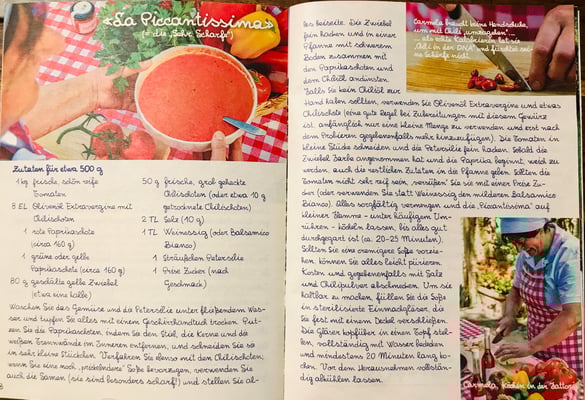 «La Piccantissima»
(= die „Sehr Scharfe“)
Zutaten für etwa 500 g
1 kg frische, schön reife
Tomaten
8 EL Olivenöl Extravergine mit
Chilischoten
1 rote Paprikaschote
(circa 160 g)
1 grüne oder gelbe
Paprikaschote (circa 160 g)
80 g geschälte gelbe Zwiebel
(etwa eine halbe)
50 g frische, grob gehackte
Chilischoten (oder etwa 10 g
getrocknete Chilischoten)
2 TL Salz (10 g)
1 TL Weinessig (oder Balsamico
Bianco)
1 Sträußchen Petersilie
1 Prise Zucker (nach
Geschmack)
Waschen Sie das Gemüse und die Petersilie unter fließendem Was-
ser und tupfen Sie alles mit einem Geschirrhandtuch trocken. Put-
zen Sie die Paprikaschoten, indem Sie den Stiel, die Kerne und die
weißen Trennwände im Inneren entfernen, und schneiden Sie sie
in sehr kleine Stückchen. Verfahren Sie ebenso mit den Chilischoten;
wenn Sie eine noch „prickelndere“ Soße bevorzugen, verwenden Sie
auch die Samen (sie sind besonders scharf!) und stellen Sie al-
8
les beiseite. Die Zwiebel
fein hacken und in einer
Pfanne mit schwerem
Boden zusammen mit
den Paprikaschoten und
dem Chiliöl andünsten.
Falls Sie kein Chiliöl zur
Hand haben sollten, verwenden Sie Olivenöl Extravergine und etwas
Chilischote (eine gute Regel bei Zubereitungen mit diesem Gewürz
ist, anfänglich nur eine kleine Menge zu verwenden und erst nach
dem Probieren gegebenenfalls mehr hinzuzufügen). Die Tomaten in
kleine Stücke schneiden und die Petersilie fein hacken. Sobald die
Zwiebel Farbe angenommen hat und die Paprika beginnt, weich zu
werden, auch die restlichen Zutaten in die Pfanne geben. Sollten die
Tomaten nicht sehr reif sein, versüßen Sie sie mit einer Prise Zu-
cker (oder verwenden Sie statt Weinessig den milderen Balsamico
Bianco). Alles sorgfältig vermengen und die „Picantissima“ auf
kleiner Flamme – unter häufigem Um-
rühren – köcheln lassen, bis alles gut
durchgegart ist (ca. 20-25 Minuten).
Sollten Sie eine cremigere Soße vorzie-
hen, können Sie alles leicht pürieren.
Kosten und gegebenenfalls mit Salz
und Chilipulver abschmecken. Um sie
haltbar zu machen, füllen Sie die Soße
in sterilisierte Einmachgläser, die
Sie fest mit einem Deckel verschließen.
Die Gläser kopfüber in einen Topf stel-
len, vollständig mit Wasser bedecken
und mindestens 20 Minuten lang ko-
chen. Vor dem Herausnehmen vollstän-
dig abkühlen lassen.
Carmela braucht keine Handschuhe,
um mit Chili „umzugehen“...
als echte Kalabrierin hat sie
„Chili in der DNA“ und fürchtet sei-
ne Schärfe nicht.
Carmela, Köchin in der Fattoria